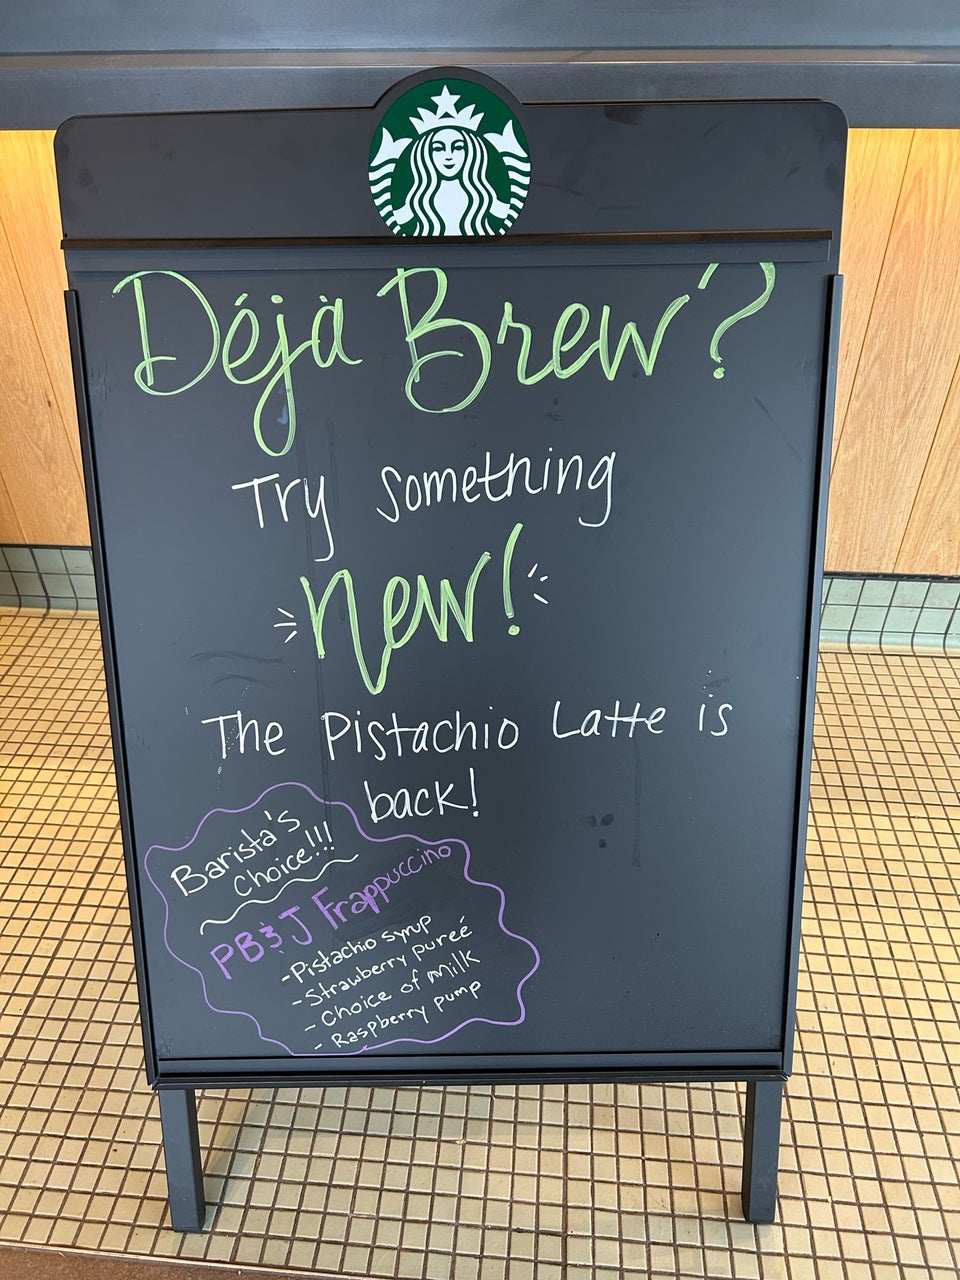 Déjà Brew?
Try something
new!
The Pistachio Latte is
back!
Barista's
choice!!!
PB&J Frappuccino
-Pistachio syrup
-Strawberry pureé
- Choice of milk
- Raspberry pump